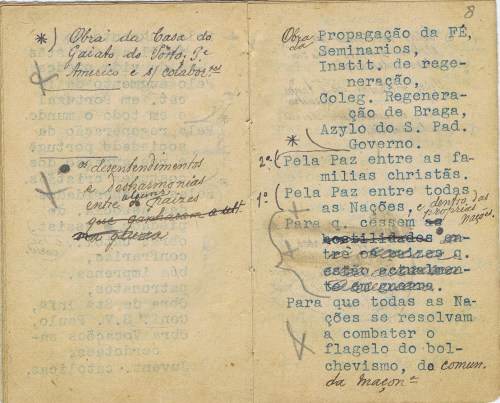 *) Obra da Casa do
Gaiato do Porto, P.e
Americo e s/ colabor.es
os desentendimentos
e desharmonias
entre alguns paizes
que ganharam a
guerra
8
Obra da Propagação da FÉ,
Seminarios,
Instit. de rege-
neração,
Coleg. Regenera-
ção de Braga,
Azylo do S. Pad.
*) Governo.
2º( Pela Paz entre as fa-
milias christãs.
1º( Pela Paz entre todas
as Nações, e dentro das
proprias nações.
Para q. cessem as
hostilidades en-
tre os paizes q.
estão actualmen-
te em guerra.
Para que todas as Na-
ções se resolvam
a combater o
flagelo do bol-
chevismo, do comun.
da maçon.a